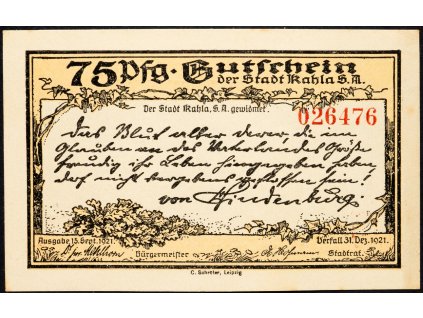 75 Pfg. Gutschein
der Stadt Kahla S.A.
Der Stadt Kahla, S.A. gewidmet.
026476
Das Blut aller derer die im
Glauben an des Vaterlandes Größe
freudig ihr Leben hingegeben haben
darf nicht vergebens geflossen sein!
von Hindenburg
Ausgabe 15. Sept. 1921.
Verfall 31. Dez. 1921.
Bürgermeister
Stadtrat.
C. Schröter, Leipzig